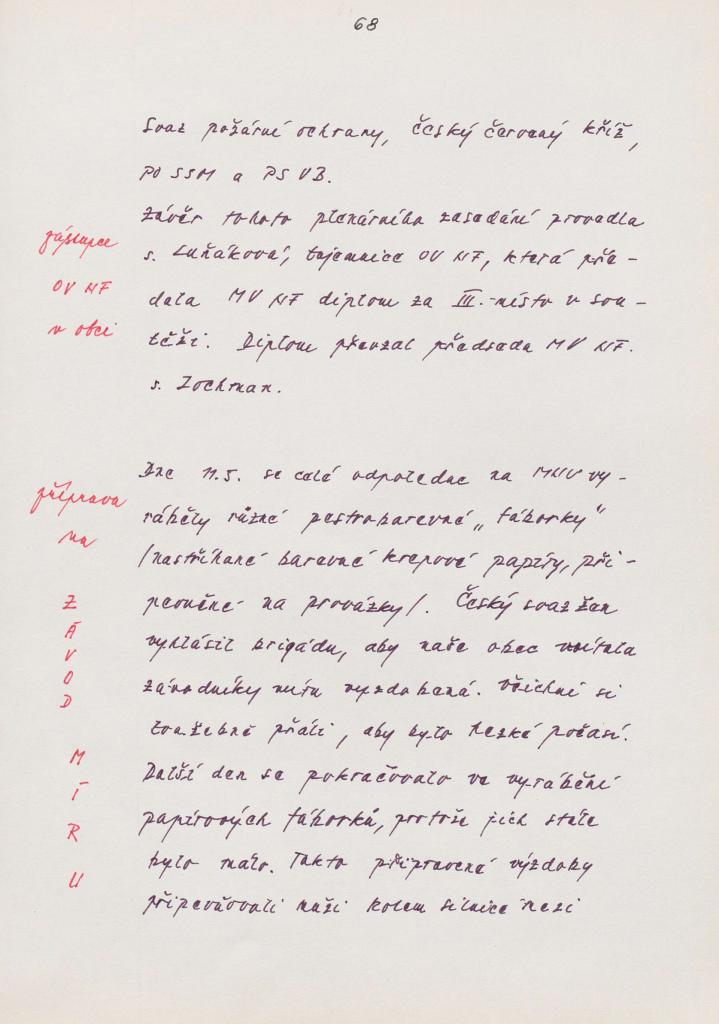 68
Svaz požární ochrany, Český červený kříž,
PO SSM a PS VB.
Závěr tohoto plenárního zasedání provedla
zástupce
s. Luňáková, tajemnice OV NF, která pře-
OV NF
dala MV NF diplom za III. místo v sou-
v obci
těži. Diplom převzal předseda MV NF.
s. Zochman.
Dne 11.5. se celé odpoledne na MNV vy-
příprava
ráběly různé pestrobarevné „táborky"
na
/nastříhané barevné krepové papíry, při-
pevněné na provázky/. Český svaz žen
ZÁVOD
vyhlásil brigádu, aby naše obec uvítala
závodníky míru vyzdobená. Všichni si
toužebně přáli, aby bylo hezké počasí.
MÍRU
Další den se pokračovalo ve vyrábění
papírových táborků, protože jich stále
bylo málo. Takto připravené výzdoby
připevňovali muži kolem silnice mezi